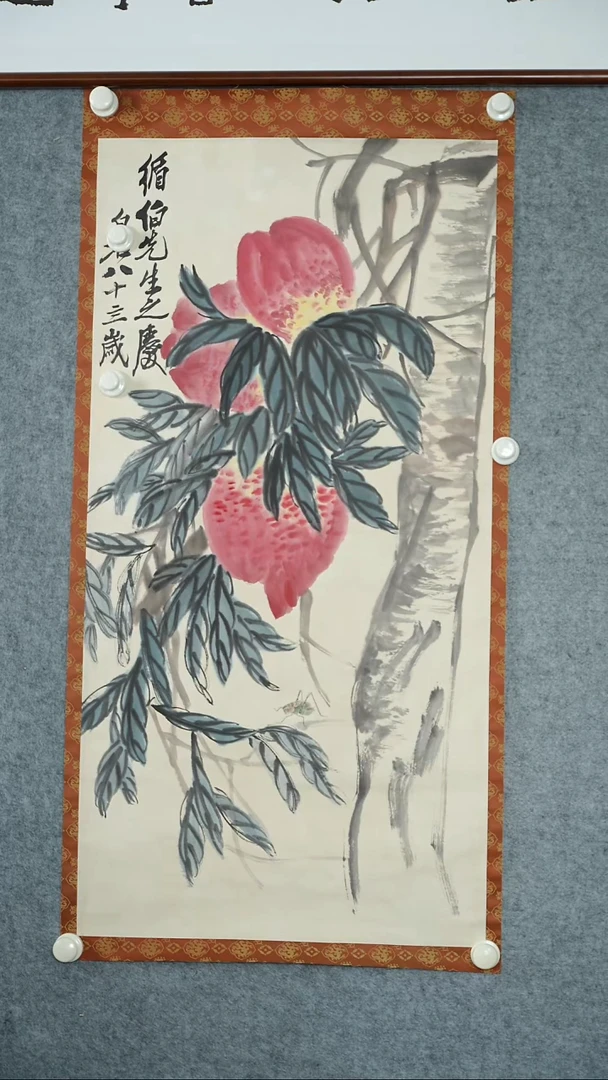 循伯先生之慶
白石八十三歲